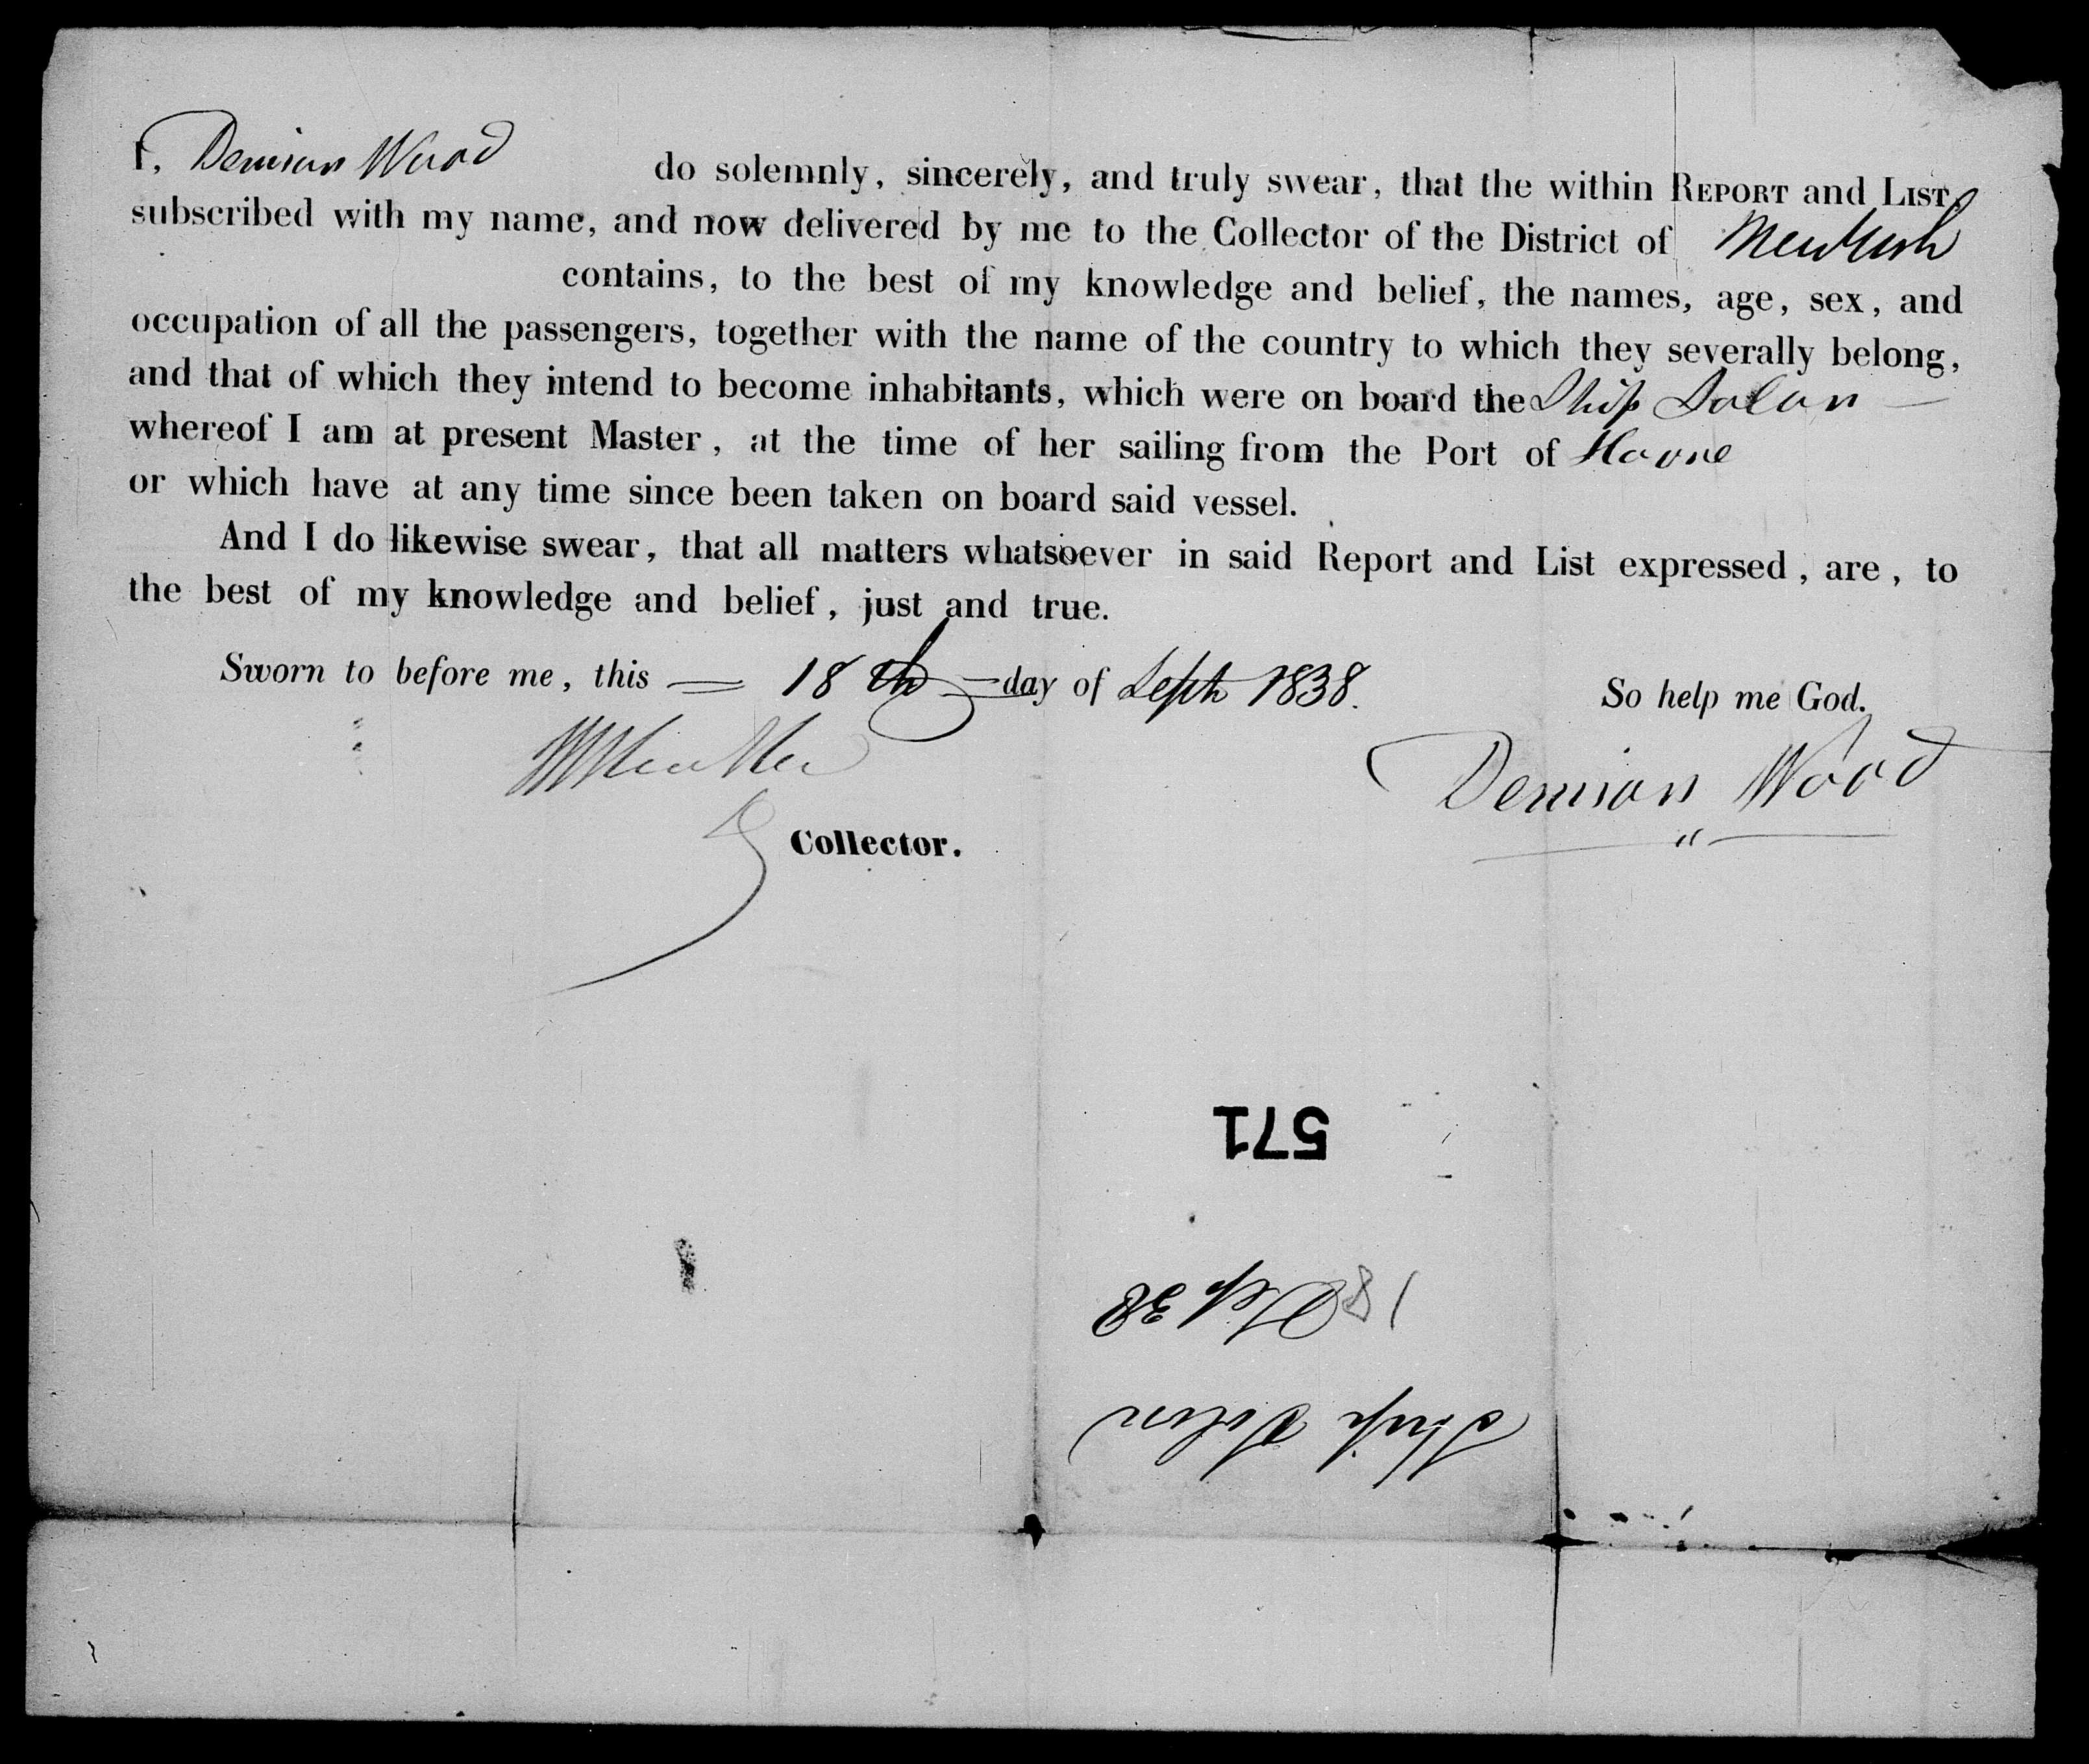 I, Demion Wood do solemnly, sincerely, and truly swear, that the within REPORT and LIST,
subscribed with my name, and now delivered by me to the Collector of the District of New York
contains, to the best of my knowledge and belief, the names, age, sex, and
occupation of all the passengers, together with the name of the country to which they severally belong,
and that of which they intend to become inhabitants, which were on board the Ship Solon —
whereof I am at present Master, at the time of her sailing from the Port of Havre
or which have at any time since been taken on board said vessel.
And I do likewise swear, that all matters whatsoever in said Report and List expressed, are, to
the best of my knowledge and belief, just and true.
Sworn to before me, this = 18th — day of Sept 1838. So help me God.
Demion Wood
Collector.
571
18 Sep 38
Ship Solon